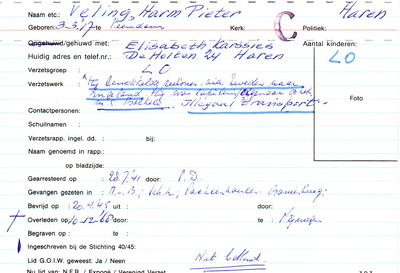 Naam etc.: Veling, Harm Pieter Haren
Geboren: 3-3-'17 te Veendam Kerk: C Politiek:
Ongehuwd/gehuwd met: Elisabeth Karssies Aantal kinderen:
Huidig adres en telef.nr.: De Holten 24 Haren LO
Verzetsgroep : LO
Verzetswerk : Hij via Zweden naar
Engeland. Hij was
in Illegaal transport.
Contactpersonen: Foto
Schuilnaam :
Verzetsrapp. ingel. dd. : bij:
Naam genoemd in rapp.:
op bladzijde:
Gearresteerd op : 28.7.'41 door: S.D.
Gevangen gezeten in : Sachsenhausen - Oranienburg;
Bevrijd op : 20.4.'45 uit : door:
† Overleden op : 10-12-'60 door: te : Nijmegen
Begraven op : te :
Ingeschreven bij de Stichting 40/45:
Lid G.O.I.W. geweest: Ja / Neen Niet
Nu lid van: N.F.R. / Expogé / Verenigd Verzet